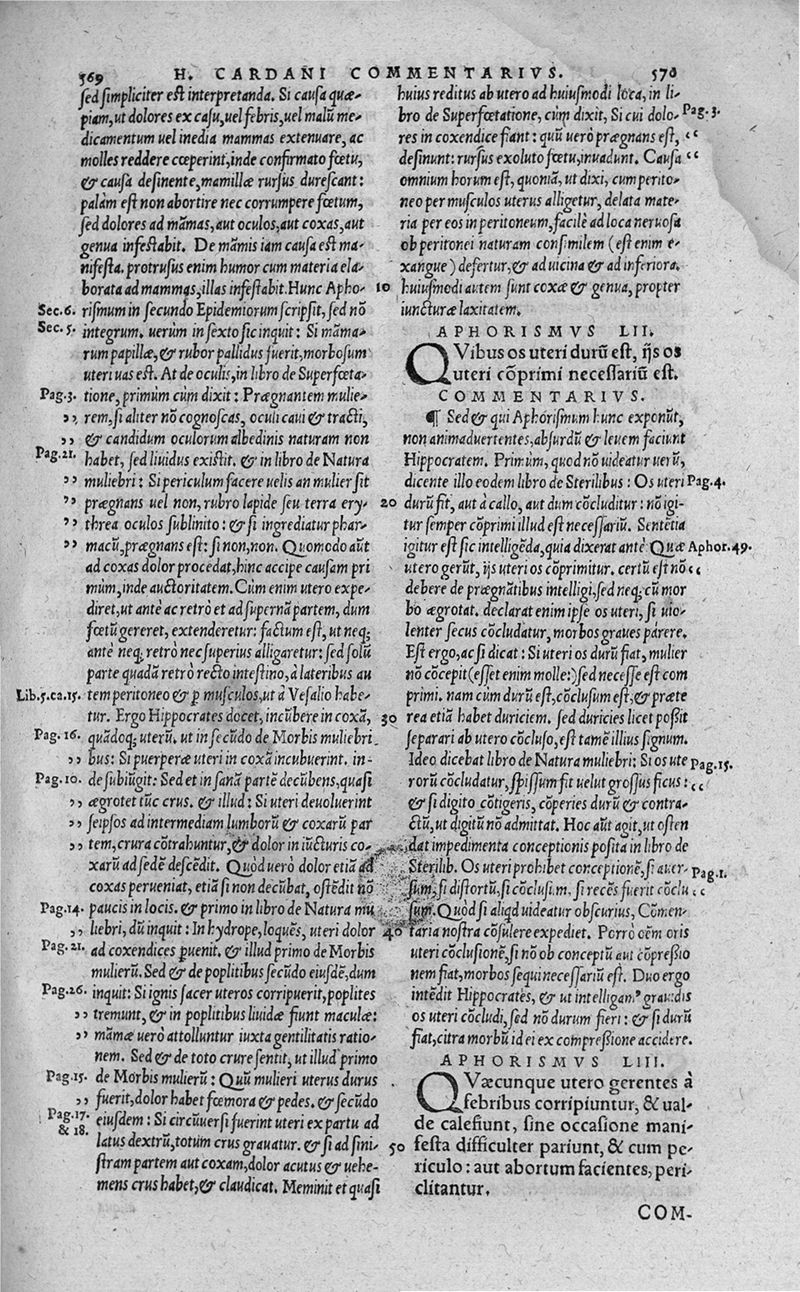 569 H. CARDANI COMMENTARIVS. 570
sed simpliciter est interpretanda. Si causa quæ-
piam, ut dolores ex casu, uel febris, uel malũ me-
dicamentum uel inedia mammas extenuare, ac
molles reddere cœperint, inde confirmato fœtu,
& causa desinente, mamillæ rursus durescant:
palàm est non abortire nec corrumpere fœtum,
sed dolores ad mãmas, aut oculos, aut coxas, aut
genua infestabit. De mãmis iam causa est ma-
nifesta. protrusus enim humor cum materia ela-
borata ad mammas, illas infestabit. Hunc Apho-
Sec. 6. rismum in secundo Epidemiorum scripsit, sed nõ
Sec. 5. integrum. uerùm in sexto sic inquit: Si mãma-
rum papillæ, & rubor pallidus fuerit, morbosum
uteri uas est. At de oculis, in libro de Superfœta-
Pag. 3. tione, primùm cùm dixit: Prægnantem mulie-
,, rem, si aliter nõ cognoscas, oculi caui & tracti,
,, & candidum oculorum albedinis naturam non
Pag. 21. habet, sed liuidus existit. & in libro de Natura
muliebri: Si periculum facere uelis an mulier sit
,, prægnans uel non, rubro lapide seu terra ery-
,, threa oculos sublinito: & si ingrediatur phar-
,, macũ, prægnans est: si non, non. Quomodo aũt
ad coxas dolor procedat, hinc accipe causam pri
mùm, inde auctoritatem. Cùm enim utero expe-
diret, ut antè ac retrò et ad supernã partem, dum
fœtũ gereret, extenderetur: factum est, ut neq;
antè neq; retrò nec superius alligaretur: sed solũ
parte quadã retrò recto intestino, à lateribus au
Lib. 5. ca. 15. tem peritoneo & p musculos, ut à Vesalio habe-
tur. Ergo Hippocrates docet, incũbere in coxã,
Pag. 16. quãdoq; uterũ. ut in secũdo de Morbis muliebri
,, bus: Si puerperæ uteri in coxã incubuerint. in-
Pag. 10. de subiũgit: Sed et in sanã partẽ decũbens, quasi
,, ægrotet tũc crus. & illud: Si uteri deuoluerint
,, seipsos ad intermediam lumborũ & coxarũ par
,, tem, crura cõtrahuntur, & dolor in iũcturis co-
xarũ ad sedẽ descẽdit. Quòd uerò dolor etiã ad
coxas perueniat, etiã si non decũbat, ostẽdit nõ
Pag. 14. paucis in locis. & primo in libro de Natura mu
,, liebri, dũ inquit: In hydrope, loquẽs, uteri dolor
Pag. 21. ad coxendices puenit. & illud primo de Morbis
mulierũ. Sed & de poplitibus secũdo eiusdẽ, dum
Pag. 26. inquit: Si ignis sacer uteros corripuerit, poplites
,, tremunt, & in poplitibus liuidæ fiunt maculæ:
,, mãmæ uerò attolluntur iuxta gentilitatis ratio-
nem. Sed & de toto crure sentit, ut illud primo
Pag. 15. de Morbis mulierũ: Quũ mulieri uterus durus
,, fuerit, dolor habet fœmora & pedes. & secũdo
Pag. 17. & 18. eiusdem: Si circũuersi fuerint uteri ex partu ad
latus dextrũ, totũm crus grauatur. & si ad sini-
stram partem aut coxam, dolor acutus & uehe-
mens crus habet, & claudicat. Meminit et quasi
huius reditus ab utero ad huiusmodi loca, in li-
bro de Superfœtatione, cùm dixit, Si cui dolo- Pag. 3.
res in coxendice fiant: quũ uerò prægnans est, ‘‘
desinunt: rursus exoluto fœtu, inuadunt. Causa ‘‘
omnium horum est, quoniã, ut dixi, cum perito-
neo per musculos uterus alligetur, delata mate-
ria per eos in peritoneum, facilè ad loca neruosa
ob peritonei naturam consimilem (est enim e-
xangue) defertur, & ad uicina & ad inferiora.
10 huiusmodi autem sunt coxæ & genua, propter
iuncturæ laxitatem.
APHORISMVS LII.
QVibus os uteri durũ est, ijs os
uteri cõprimi necessariũ est.
COMMENTARIVS.
¶ Sed & qui Aphorismum hunc exponũt,
non animaduertentes, absurdũ & leuem faciunt
Hippocratem. Primùm, quod nõ uideatur uerũ,
dicente illo eodem libro de Sterilibus: Os uteri Pag. 4.
20 durũ fit, aut à callo, aut dum cõcluditur: nõ igi-
tur semper cõprimi illud est necessariũ. Sentẽtia
igitur est sic intelligẽda, quia dixerat antè Quæ Aphor. 49.
utero gerũt, ijs uteri os cõprimitur. certũ est nõ ‘‘
debere de prægnãtibus intelligi, sed neq; cũ mor
bo ægrotat. declarat enim ipse os uteri, si uio-
lenter secus cõcludatur, morbos graues parere.
Est ergo, ac si dicat: Si uteri os durũ fiat, mulier
nõ cõcepit (esset enim molle:) sed necesse est com
primi. nam cùm durũ est, cõclusum est, & præte
30 rea etiã habet duriciem. sed duricies licet possit
separari ab utero cõcluso, est tamẽ illius signum.
Ideo dicebat libro de Natura muliebri: Si os ute Pag. 15.
rorũ cõcludatur, spissum fit uelut grossus ficus: ‘‘
& si digito cõtigeris, cõperies durũ & contra-
ctũ, ut digitũ nõ admittat. Hoc aũt agit, ut osten
dat impedimenta conceptionis posita in libro de
Sterilib. Os uteri prohibet conceptionẽ, si auer- Pag. 1.
sum, si distortũ, si cõclusum, si recẽs fuerit cõclu ‘‘
sum. Quòd si aliqd uideatur obscurius, Cõmen-
40 taria nostra cõsulere expediet. Porrò oẽm oris
uteri cõclusionẽ, si nõ ob conceptũ aut cõpressio
nem fiat, morbos sequi necessariũ est. Duo ergo
intẽdit Hippocrates, & ut intelligam⁹ grauidis
os uteri cõcludi, sed nõ durum fieri: & si durũ
fiat, citra morbũ id ei ex compressione accidere.
APHORISMVS LIII.
QVæcunque utero gerentes à
febribus corripiuntur, & ual-
de calefiunt, sine occasione mani-
50 festa difficulter pariunt, & cum pe-
riculo: aut abortum facientes, peri-
clitantur.
COM-